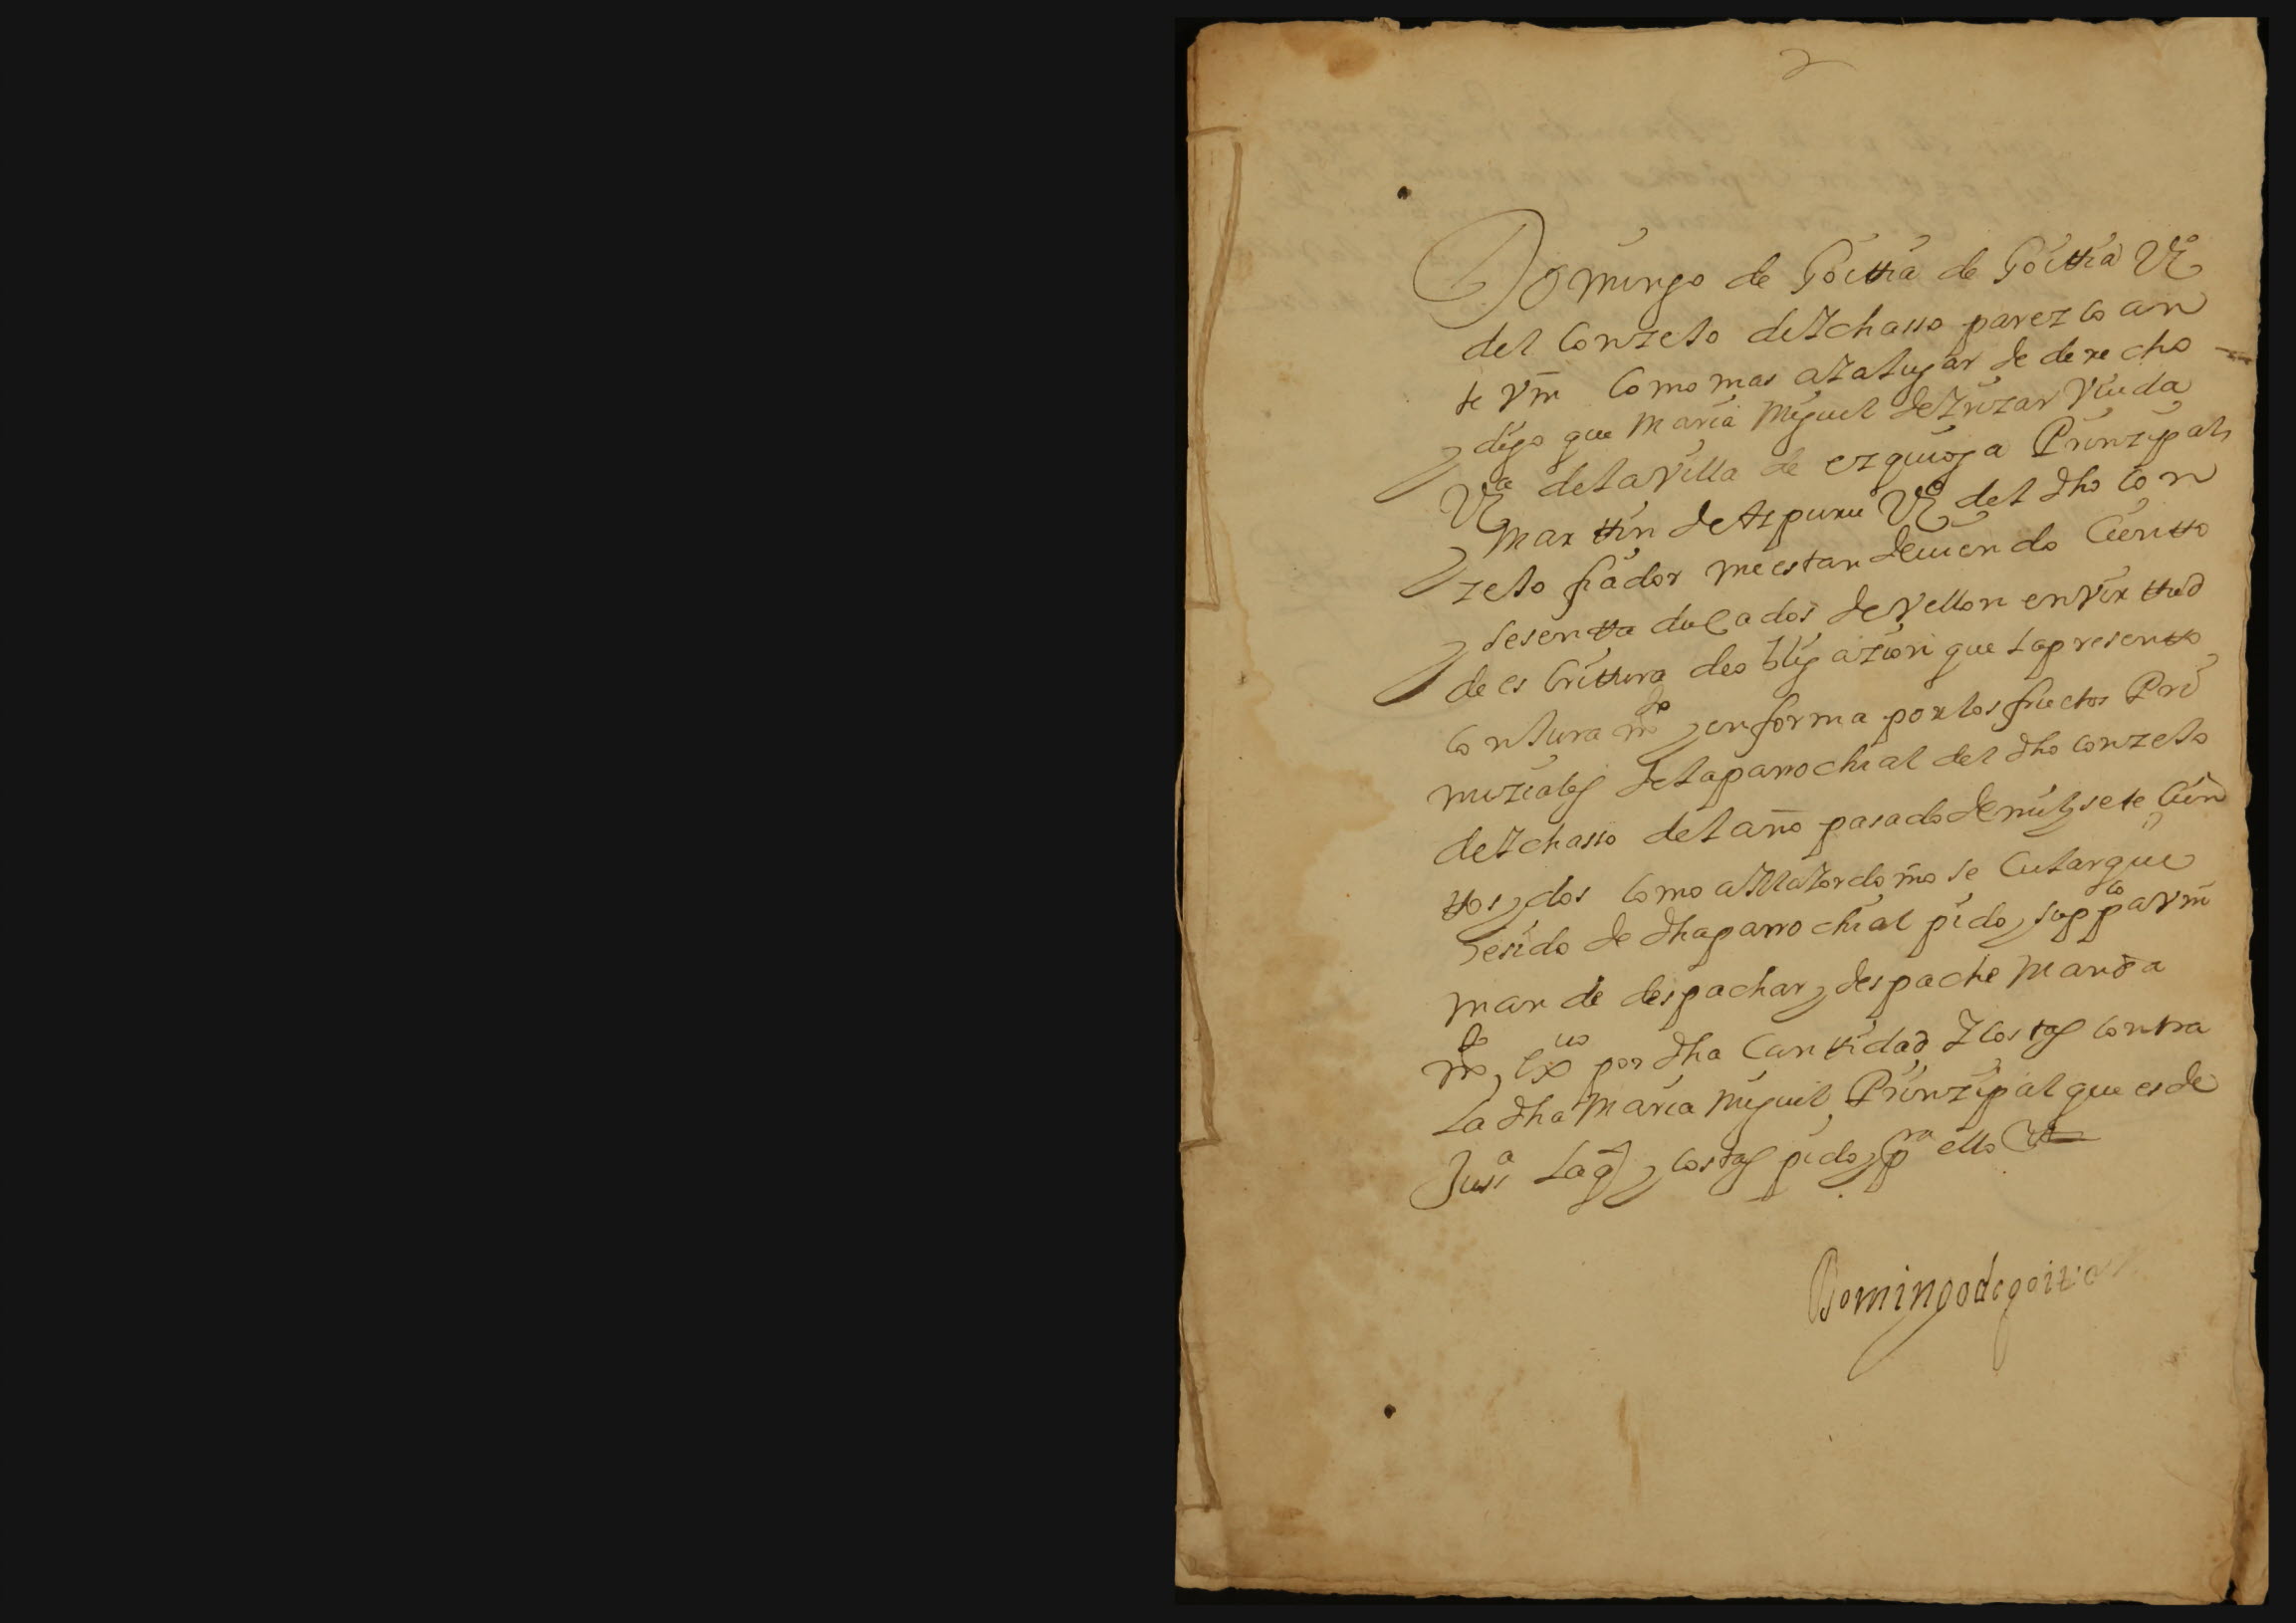 2
Domingo de Goittia de Goittia Vº
del Conzejo de Ychasso parezco an
te Vm como mas aya lugar de derecho
y digo que Maria Miguel de Yrizar Viuda
Vª de la Villa de ezquioga Prinzipal
y Marttin de Aspuru Vº del dho Con
zejo fiador me estan deuiendo Cientto
y sesentta ducados de Vellon en Virttud
de escrittura de obligazion que la presentto
con Juramto en forma por los fructos Pri
miziales de la parrochial del dho conzejo
de Ychasso del año pasado de mil y sete cien
ttos y dos como a Mayordomo se cular que
he sido de dha parrochial pido y suppco a Vm
mande despachar y despache Manda
mto exuo por dha Canttidad y costas contra
la dha Maria Miguel Prinzipal que es de
Jusª la q y costas pido y pra ello etta
Domingo de goitia